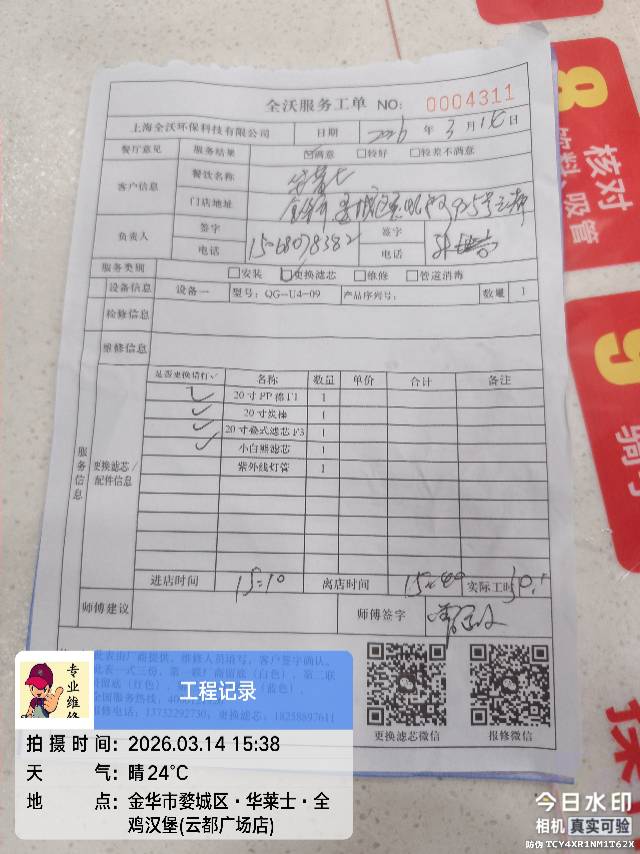 全沃服务工单 NO: 0004311
上海全沃环保科技有限公司 日期 2026 年 3 月 14 日
餐厅意见 服务结果 ☑满意 □较好 □较差不满意
客户信息 餐饮名称 华莱士
门店地址 金华市婺城区
负责人 签字 签字
电话 15068078382 电话
服务类别 □安装 ☑更换滤芯 □维修 □管道消毒
设备信息 设备一 型号: QG-U4-09 产品序列号: 数量 1
检修信息
维修信息
服务信息
更换滤芯/配件信息
是否更换请打√ 名称 数量 单价 合计 备注
✓ 20寸PP棉F1 1
✓ 20寸炭棒 1
✓ 20寸叠式滤芯F3 1
✓ 小白熊滤芯 1
紫外线灯管 1
进店时间 15:10 离店时间 15:40 实际工时
师傅建议 师傅签字
此表由厂商提供，维修人员填写，客户签字确认。
更换滤芯微信 报修微信
专业维修
工程记录
拍摄时间: 2026.03.14 15:38
天气: 晴 24℃
地点: 金华市婺城区·华莱士·全鸡汉堡(云都广场店)
8
核对
吸管
9
今日水印
相机 真实可验
防伪 TCY4XR1NM1T62X